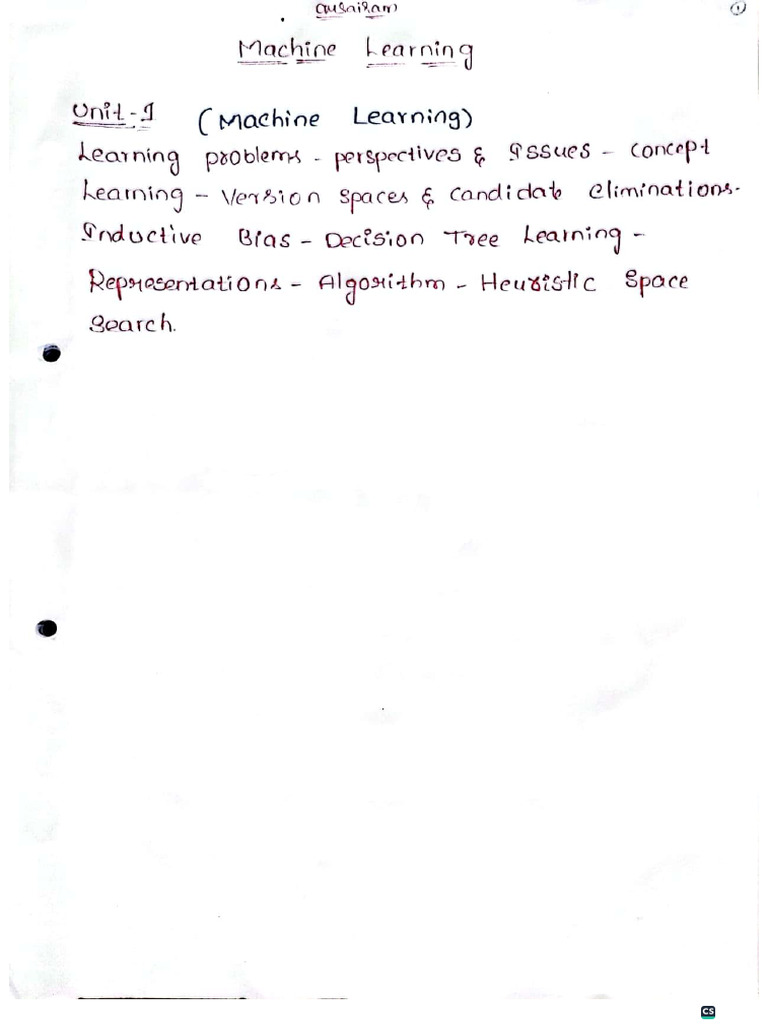 ①
Machine Learning
Unit-I (Machine Learning)
Learning problems - perspectives & Issues - concept
Learning - Version Spaces & Candidate eliminations.
Inductive Bias - Decision Tree Learning -
Representations - Algorithm - Heuristic Space
Search.
CS